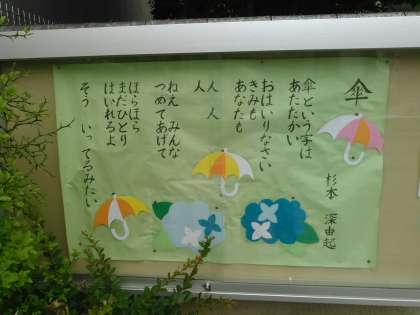 傘
杉本 深由起
傘という字は
あたたかい
おはいりなさい
きみも
あなたも
人 人
人
ねえ みんな
つめてあげて
ほらほら
まだひとり
はいれるよ
そう いってるみたい